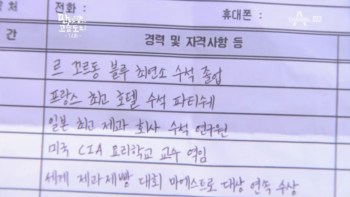 처 전화 : 휴대폰 :
간 경력 및 자격사항 등
르 꼬르동 블루 최연소 수석 졸업
프랑스 최고 호텔 수석 파티쉐
일본 최고 제과 회사 수석 연구원
미국 CIA 요리학교 교수 역임
세계 제과제빵 대회 마에스트로 대상 연속 수상